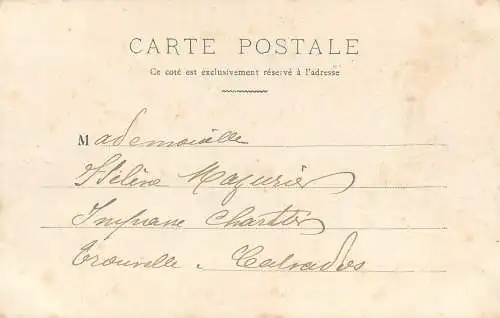 CARTE POSTALE
Ce coté est exclusivement réservé à l'adresse
Mademoiselle
Hélène Mazurier
Impasse Chartier
Trouville - Calvados